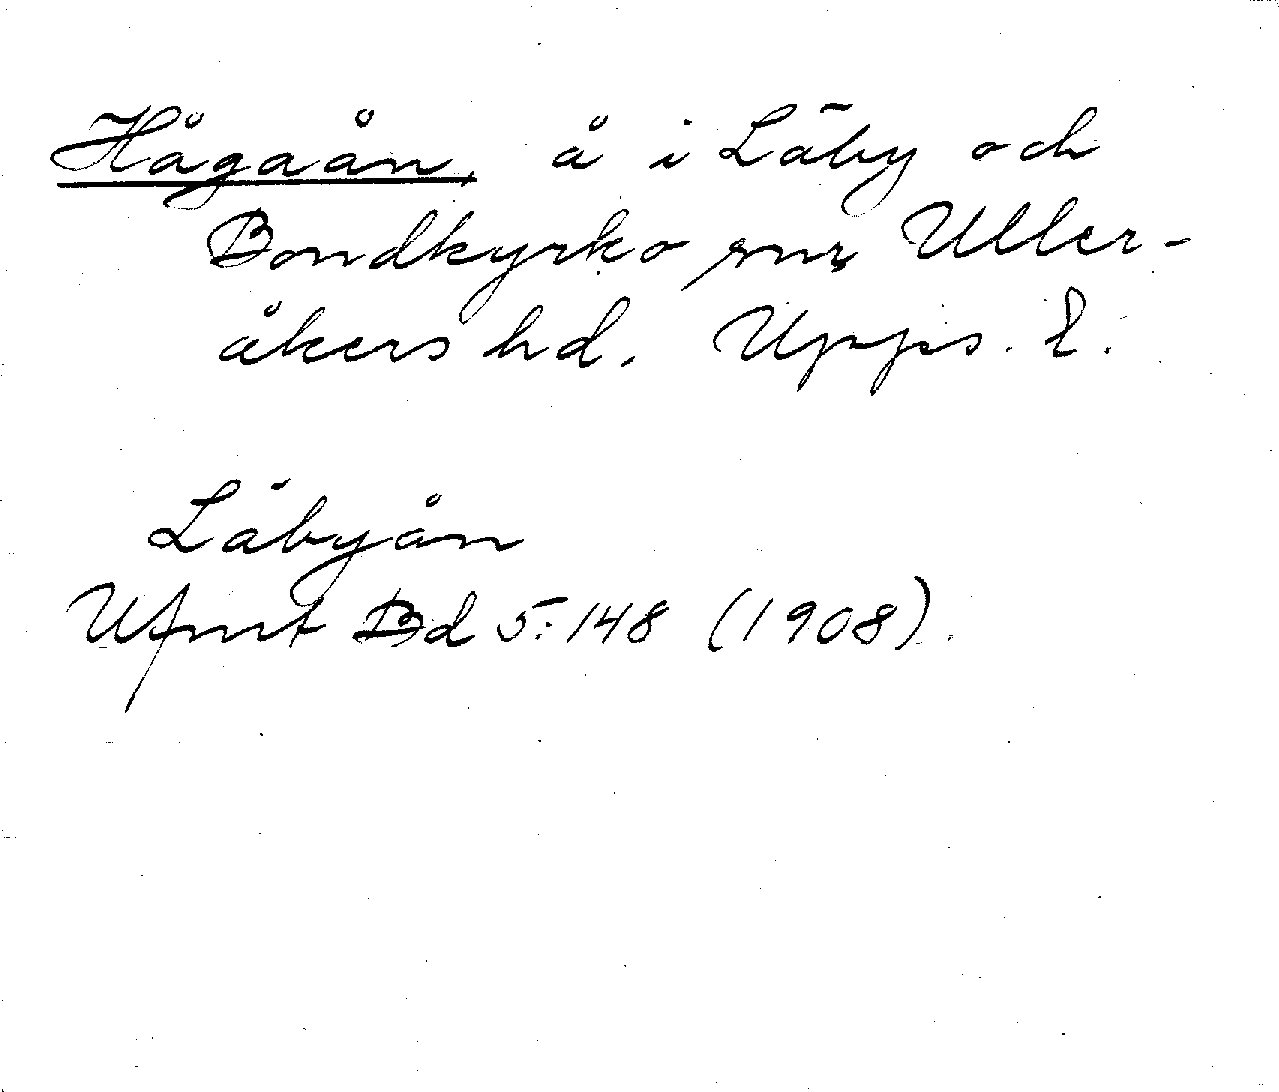 Hågaån, å i Läby och
Bondkyrko snr Uller-
åkers hd. Upps. l.
Läbyån
Ufmt Bd 5:148 (1908).